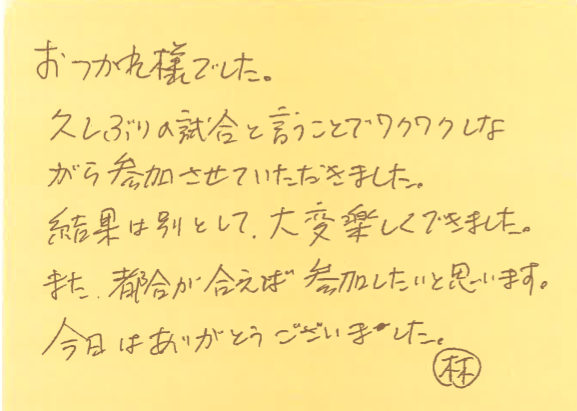 おつかれ様でした。
久しぶりの試合と言うことでワクワクしな
がら参加させていただきました。
結果は別として、大変楽しくできました。
また、都合が合えば参加したいと思います。
今日はありがとうございました。
林